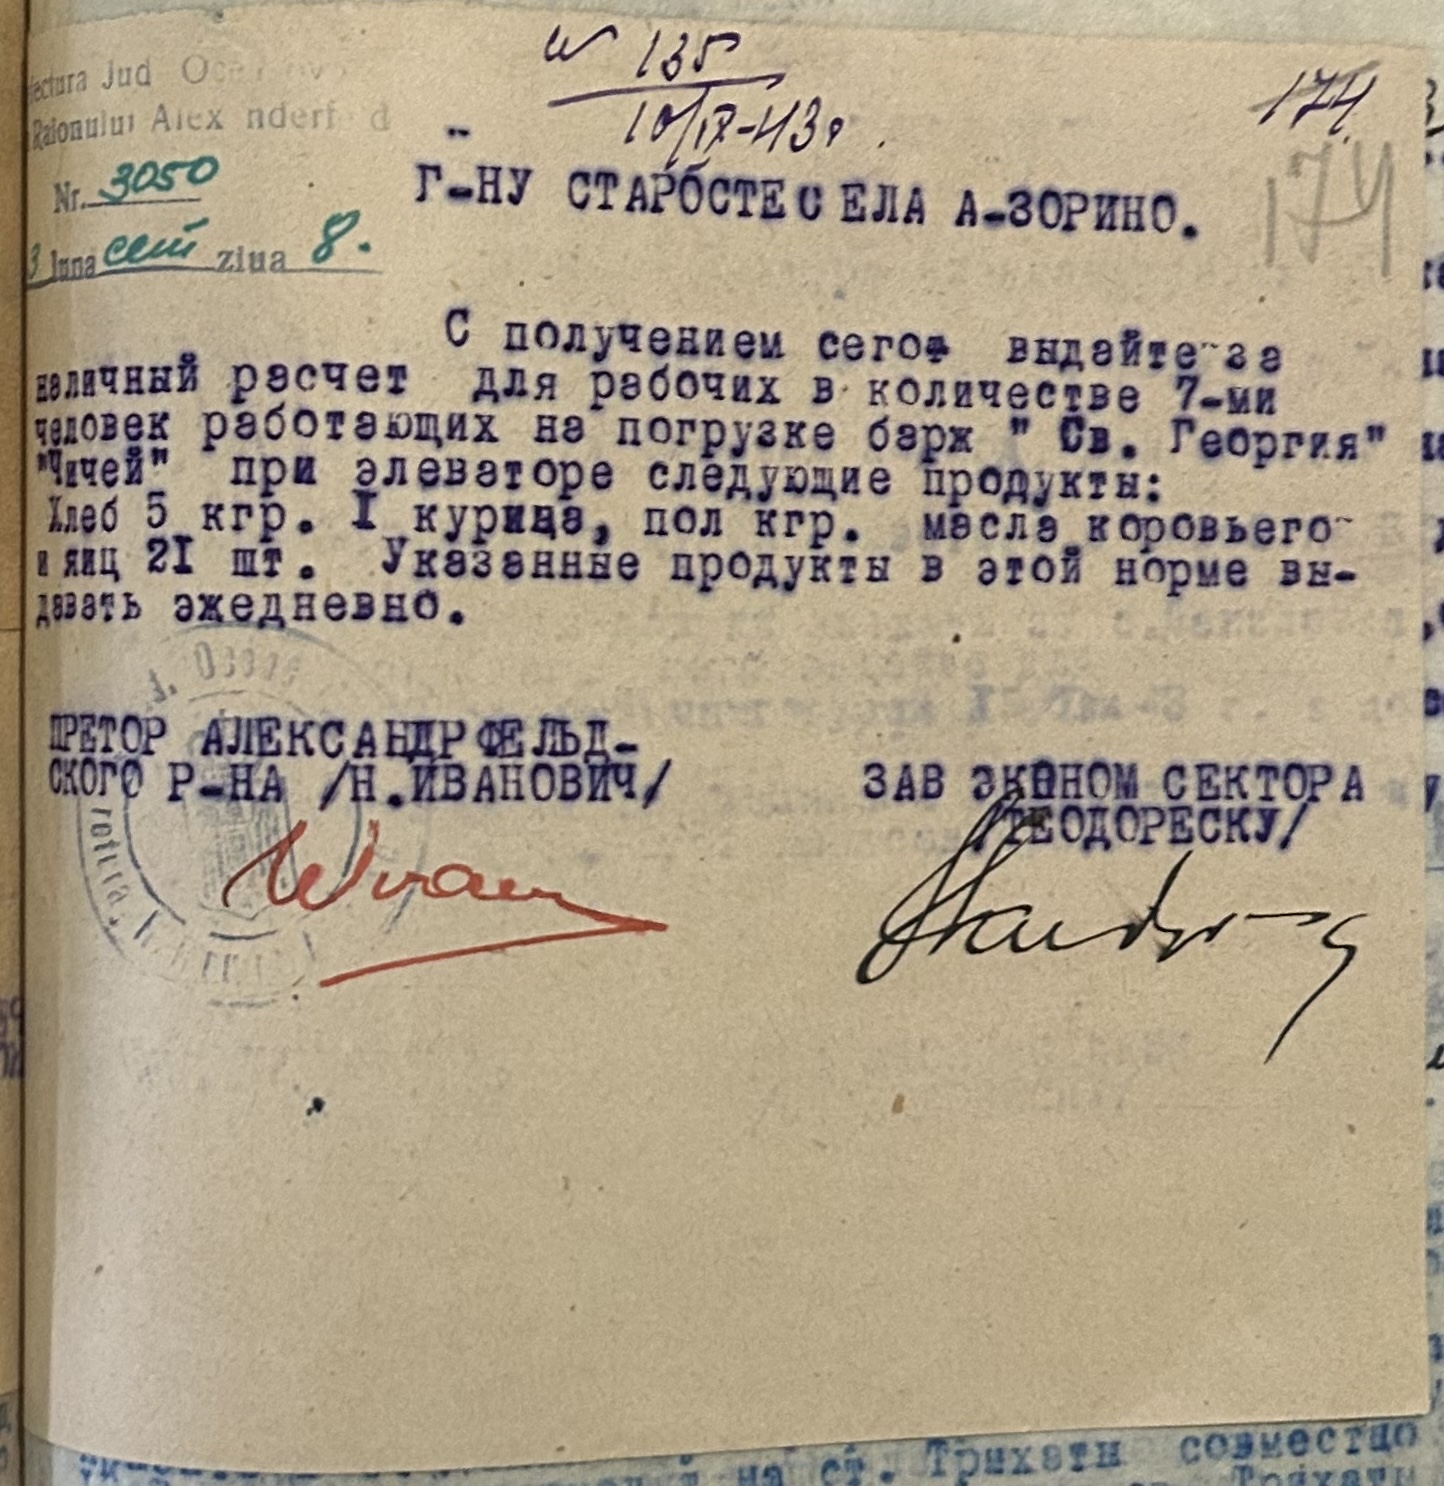 № 135
10/IX-43г.
174
174
ectura Jud Oceacov
Raionului Alexanderfeld
Nr. 3050
3 luna сет ziua 8.
Г-НУ СТАРОСТЕ СЕЛА А-ЗОРИНО.
С получением сего выдайте за
наличный расчет для рабочих в количестве 7-ми
человек работающих на погрузке барж " Св. Георгия"
"Чичей" при элеваторе следующие продукты:
Хлеб 5 кгр. I курица, пол кгр. масла коровьего
и яиц 2I шт. Указанные продукты в этой норме вы-
давать эжедневно.
ПРЕТОР АЛЕКСАНДРФЕЛЬД-
СКОГО Р-НА /Н.ИВАНОВИЧ/
ЗАВ ЭКОНОМ СЕКТОРА
/ТЕОДОРЕСКУ/
на ст. Трихаты совместно
Трихаты